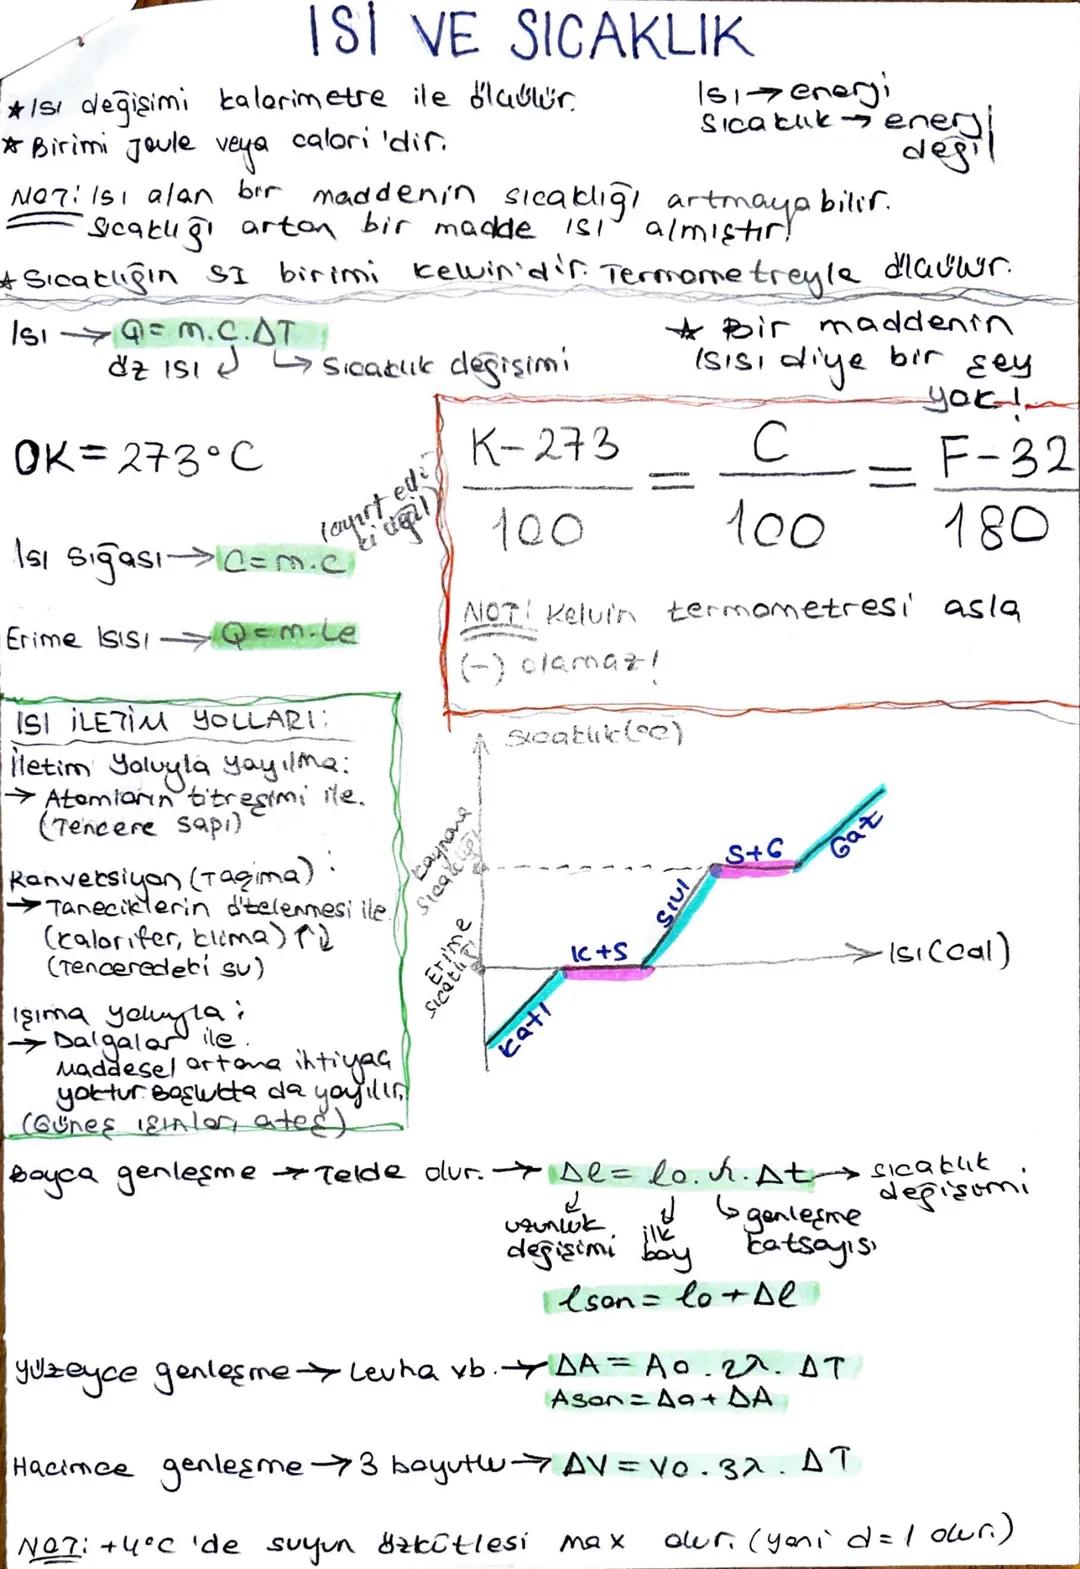 ISI VE SICAKLIK
★ Isı değişimi kalorimetre ile ölçülür.
Isı → enerji
★ Birimi Joule veya calori 'dir.
Sıcaklık → enerji
değil
NOT: Isı alan bir maddenin sıcaklığı artmayabilir.
Sıcaklığı artan bir madde ısı almıştır!
★ Sıcaklığın SI birimi kelwin'dir. Termometreyle ölçülür.
Isı → Q = m.C.ΔT
öz ısı
→ Sıcaklık değişimi
★ Bir maddenin
ısısı diye bir şey
yok!
0K = 273°C
K-273 / 100 = C / 100 = F-32 / 180
(ayırt edi
ci değil)
Isı sığası → C = m.c
Erime Isısı → Q = m.Le
NOT! Kelvin termometresi asla
(-) olamaz!
ISI İLETİM YOLLARI:
İletim Yoluyla Yayılma:
→ Atomların titreşimi ile.
(Tencere sapı)
Konveksiyon (Taşıma):
→ Taneciklerin ötelenmesi ile.
(kalorifer, klima) ↑↓
(Tenceredeki su)
Işıma yoluyla:
→ Dalgalar ile.
Maddesel ortama ihtiyaç
yoktur. Boşlukta da yayılır.
(Güneş ışınları, ateş)
Sıcaklık (°C)
Kaynama
Sıcaklığı
Erime
sıcaklığı
Katı
K+S
SIVI
S+G
Gaz
Isı (cal)
Boyca genleşme → Telde olur. → Δl = lo. λ. Δt → sıcaklık
değişimi
uzunluk
değişimi
ilk
boy
genleşme
katsayısı
lson = lo + Δl
Yüzeyce genleşme → Levha vb. → ΔA = Ao . 2λ . ΔT
Ason = Δa + ΔA
Hacimce genleşme → 3 boyutlu → ΔV = Vo . 3λ . ΔT
NOT: +4°C 'de suyun özkütlesi max olur. (yani d = 1 olur.)